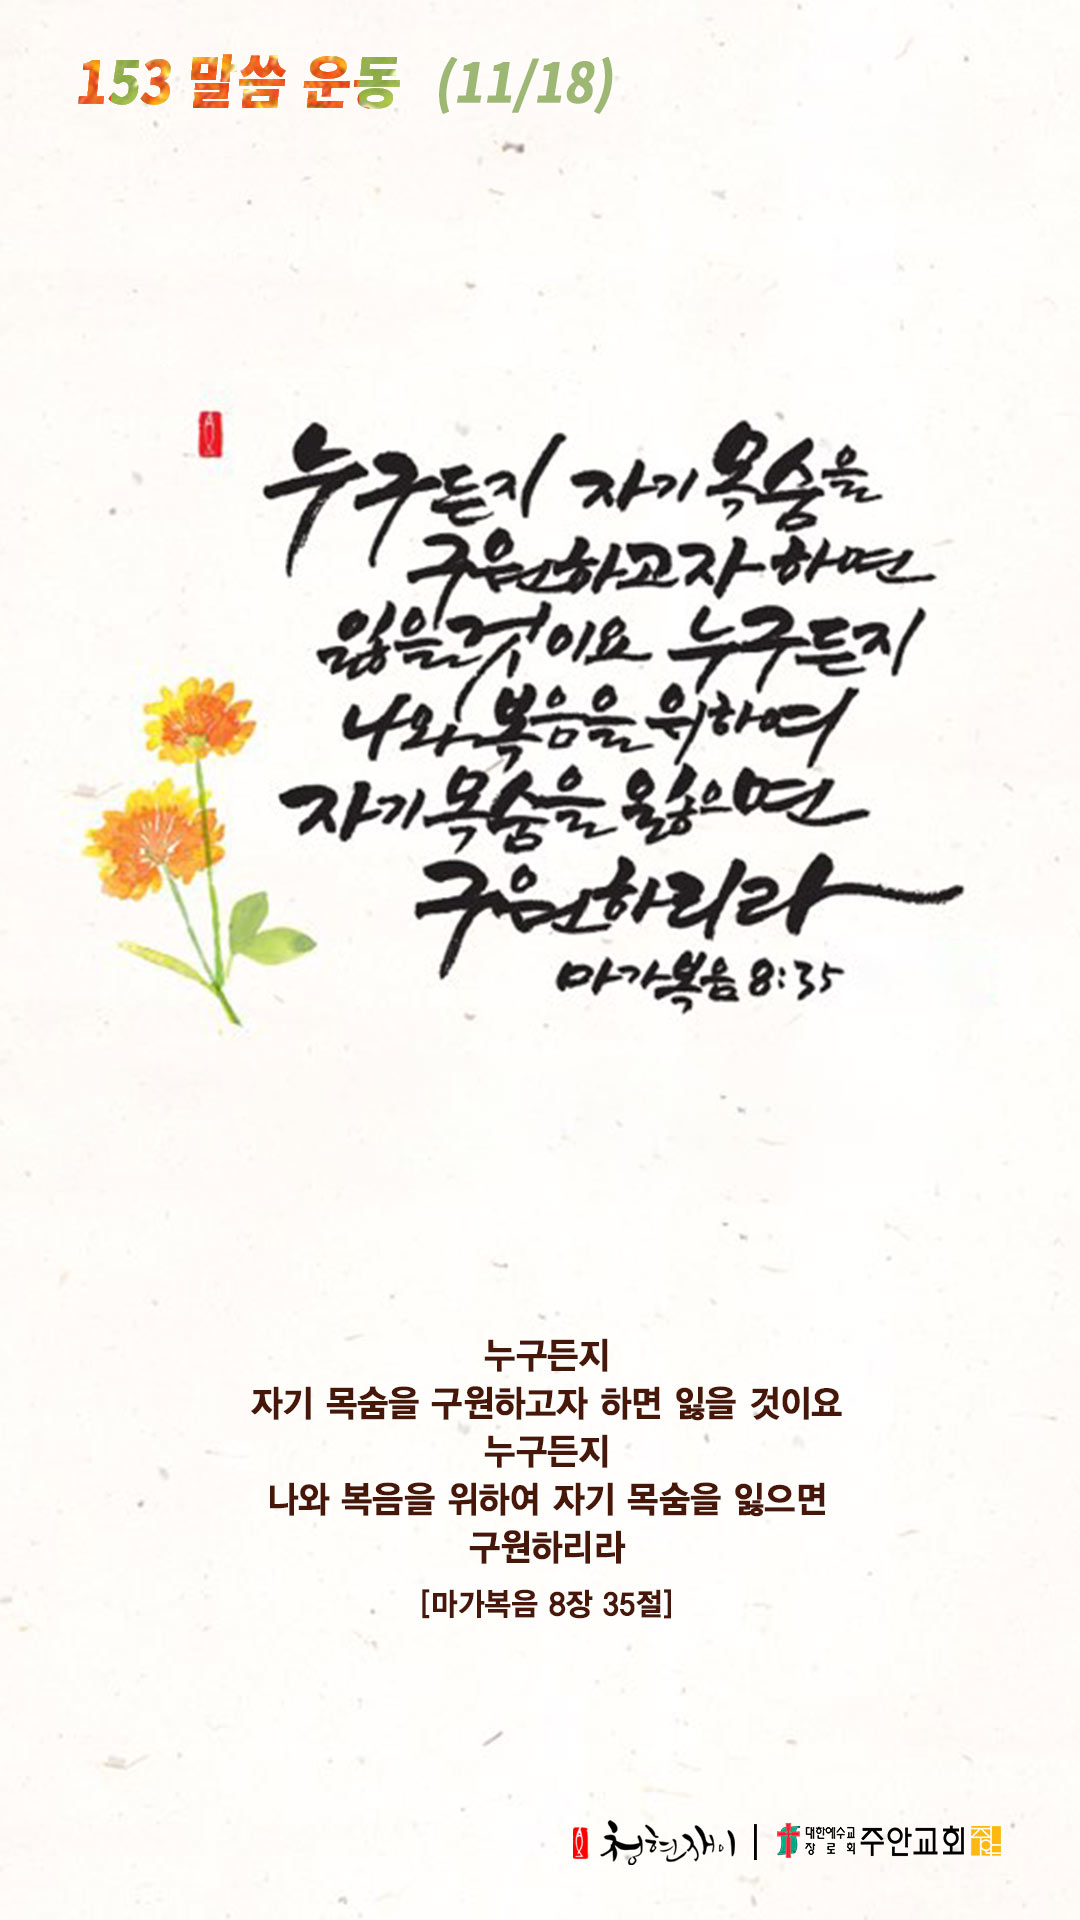 153 말씀 운동 (11/18)
누구든지 자기 목숨을
구원하고자 하면
잃을 것이요 누구든지
나와 복음을 위하여
자기 목숨을 잃으면
구원하리라
마가복음 8:35
누구든지
자기 목숨을 구원하고자 하면 잃을 것이요
누구든지
나와 복음을 위하여 자기 목숨을 잃으면
구원하리라
[마가복음 8장 35절]
청현재이 | 대한예수교 장로회 주안교회 주안